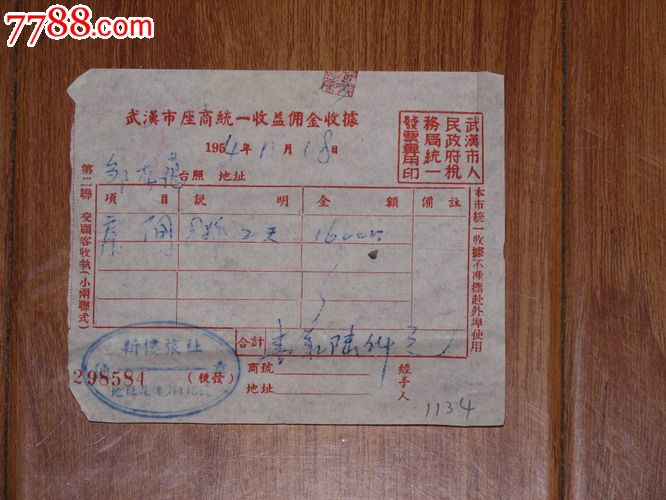 7788.com
武漢市座商統一收益佣金收據
1954年11月18日
武漢市人
民政府稅
務局統一
發票專用印
台照 地址
第二聯 交顧客收執(小兩聯式)
項目 說明 金額 備註
2天 16000
合計 壹万陆仟元
新樓旅社
298584 (稅發)
商號
地址
經手人
本市統一收據不准攜赴外埠使用
1134